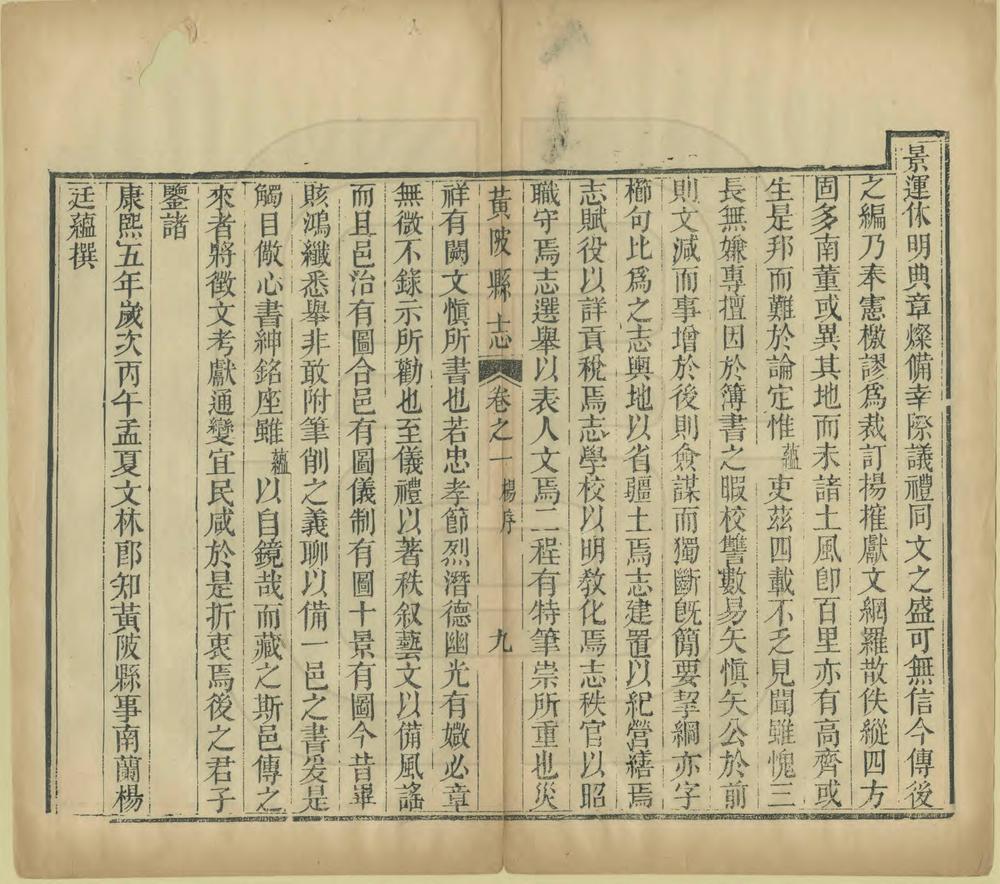 景運休明典章燦備幸際議禮同文之盛可無信今傳後
之編乃奉憲檄謬爲裁訂揚搉獻文網羅散佚縱四方
固多南董或異其地而未諳土風卽百里亦有高齊或
生是邦而難於論定惟蘊吏茲四載不乏見聞雖愧三
長無嫌專擅因於簿書之暇校讐數易矢愼矢公於前
則文減而事增於後則僉謀而獨斷旣簡要挈綱亦字
櫛句比爲之志輿地以省疆土焉志建置以紀營繕焉
志賦役以詳貢稅焉志學校以明敎化焉志秩官以昭
職守焉志選舉以表人文焉二程有特筆崇所重也災
黃陂縣志 卷之一 楊序 九
祥有闕文愼所書也若忠孝節烈潛德幽光有媺必章
無微不錄示所勸也至儀禮以著秩叙藝文以備風謠
而且邑治有圖合邑有圖儀制有圖十景有圖今昔畢
賅鴻纖悉舉非敢附筆削之義聊以備一邑之書爰是
觸目儆心書紳銘座雖蘊以自鏡哉而藏之斯邑傳之
來者將徵文考獻通變宜民咸於是折衷焉後之君子
鑒諸
康熙五年歲次丙午孟夏文林郎知黃陂縣事南蘭楊
廷蘊撰